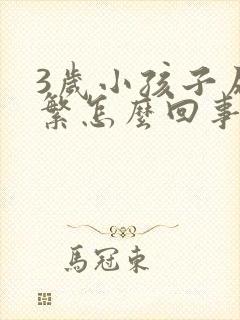 3歲小孩子
繁怎麼回事
馬冠東